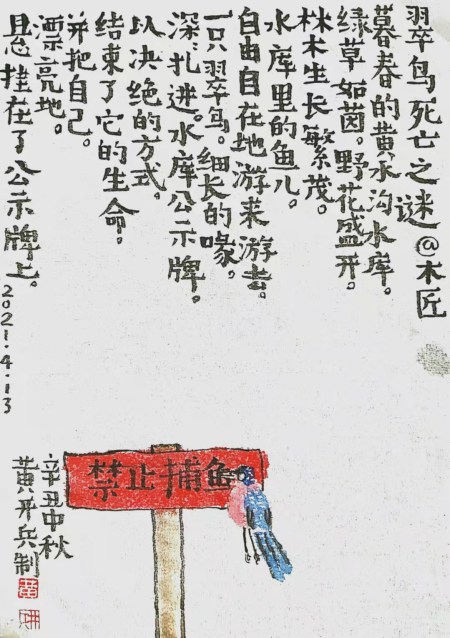 翠鸟死亡之谜@木匠
暮春的黄水沟水库。
绿草如茵。野花盛开。
林木生长繁茂。
水库里的鱼儿。
自由自在地游来游去。
一只翠鸟。细长的喙。
深:扎进。水库公示牌。
以决绝的方式。
结束了它的生命。
并把自己。
漂亮地。
悬挂在了公示牌上。2021.4.13
禁止捕鱼
辛丑中秋
黄开兵制
黄